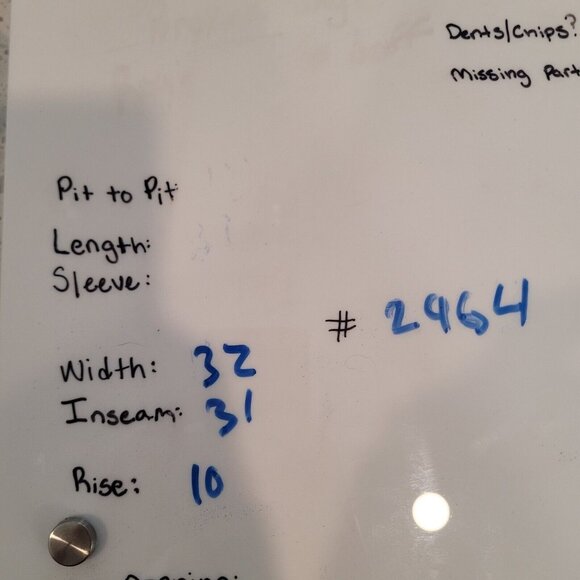 Dents/Chips?
Missing Part
Pit to Pit
Length:
Sleeve:
# 2964
Width: 32
Inseam: 31
Rise: 10